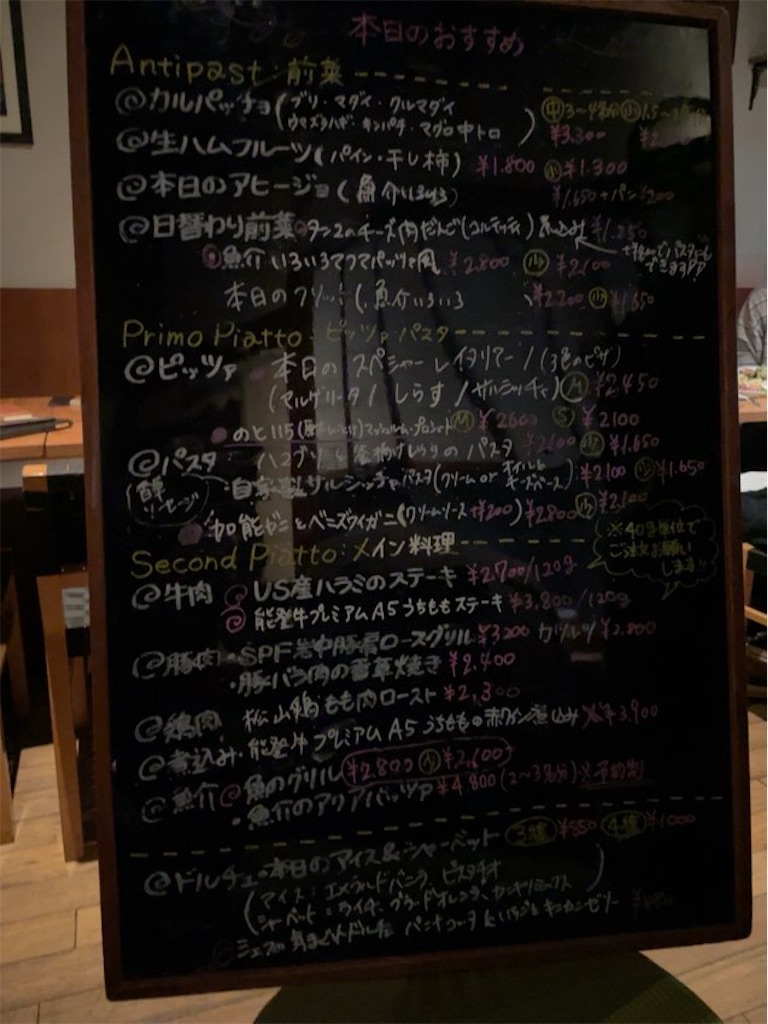 本日のおすすめ
Antipast:前菜
@カルパッチョ(ブリ・マダイ・クルマダイ
ウマヅラハギ・キンパチ・マグロ中トロ) ㊥3~4名分 ㊙ ¥3,300
@生ハムフルーツ(パイン・干し柿) ¥1,800 ㊛¥1,300
@本日のアヒージョ(魚介いろいろ) ¥1,650+パン¥200
@日替わり前菜 チーズ肉だんご 煮込み
魚介いろいろアクアパッツァ風 ¥2,800 小¥2,100
本日のフリット(魚介いろいろ) ¥2200 小¥1,650
Primo Piatto:ピッツァ・パスタ
@ピッツァ 本日のスペシャーレ イタリアーノ(3色のピザ)
(マルゲリータ/しらす/サルシッチャ) M ¥2,450
のと115 マッシュルーム・プロシュート M ¥2600 S ¥2100
@パスタ 釜揚げしらすのパスタ 小¥1,650
自家製サルシッチャパスタ(クリーム or オイル&チーズベース) ¥2100 小¥1.650
香草ソーセージ
加能ガニとベニズワイガニ(クリームソース+¥200) ¥2800 小¥2,100
Second Piatto:メイン料理
※40g単位でご注文お願いします!!
@牛肉 US産ハラミのステーキ ¥2.700/120g
能登牛プレミアムA5うちももステーキ ¥3,800/120g
@豚肉・SPF岩中豚肩ロースグリル ¥3200 カツレツ ¥2.800
・豚バラ肉の香草焼き ¥2,400
@鶏肉 松山鶏もも肉ロースト ¥2,300
@煮込み・能登牛プレミアムA5うちももの赤ワイン煮込み ¥3,900
@魚介 魚のグリル ¥2.800 小¥2,600
・魚介のアクアパッツァ ¥4,800(2~3名分)
@ドルチェ・本日のアイス&シャーベット 3種 ¥850 4種 ¥1000
(アイス:エメラルドバニラ、ピスタチオ
シャーベット:ライチ、ブラッドオレンジ、)
シェフの気まぐれドルチェ パンナコッタ いちごとキンカンゼリー